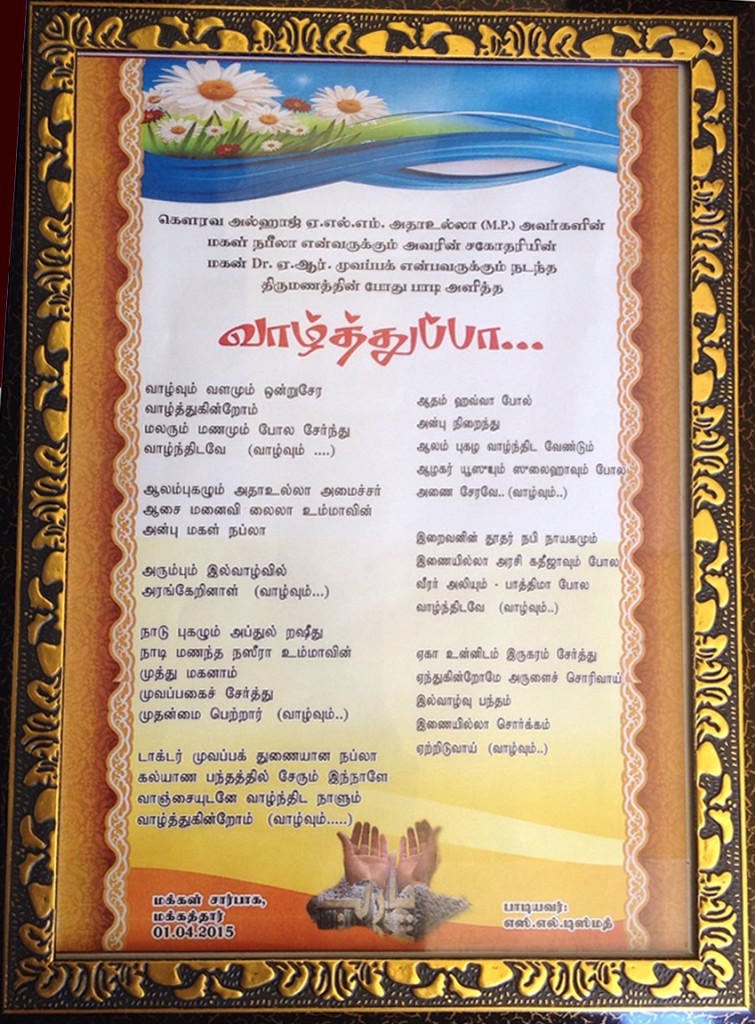 கௌரவ அல்ஹாஜ் ஏ.எல்.எம். அதாஉல்லா (M.P.) அவர்களின்
மகள் நபீலா என்வருக்கும் அவரின் சகோதரியின்
மகன் Dr. ஏ.ஆர். முவப்பக் என்பவருக்கும் நடந்த
திருமணத்தின் போது பாடி அளித்த
வாழ்த்துப்பா...
வாழ்வும் வளமும் ஒன்றுசேர
வாழ்த்துகின்றோம்
மலரும் மணமும் போல சேர்ந்து
வாழ்ந்திடவே (வாழ்வும் ....)
ஆலம்புகழும் அதாஉல்லா அமைச்சர்
ஆசை மனைவி லைலா உம்மாவின்
அன்பு மகள் நப்லா
அரும்பும் இல்வாழ்வில்
அரங்கேறினாள் (வாழ்வும்...)
நாடு புகழும் அப்துல் றஷீது
நாடி மணந்த நஸீரா உம்மாவின்
முத்து மகனாம்
முவப்பகைச் சேர்த்து
முதன்மை பெற்றார் (வாழ்வும்..)
டாக்டர் முவப்பக் துணையான நப்லா
கல்யாண பந்தத்தில் சேரும் இந்நாளே
வாஞ்சையுடனே வாழ்ந்திட நாளும்
வாழ்த்துகின்றோம் (வாழ்வும்.....)
மக்கள் சார்பாக,
மக்கத்தார்
01.04.2015
ஆதம் ஹவ்வா போல்
அன்பு நிறைந்து
ஆலம் புகழ வாழ்ந்திட வேண்டும்
ஆழகர் யூஸுபும் ஸுலைஹாவும் போல
அணை சேரவே.. (வாழ்வும்..)
இறைவனின் தூதர் நபி நாயகமும்
இணையில்லா அரசி கதீஜாவும் போல
வீரர் அலியும் - பாத்திமா போல
வாழ்ந்திடவே (வாழ்வும்..)
ஏகா உன்னிடம் இருகரம் சேர்த்து
ஏந்துகின்றோமே அருளைச் சொரிவாய்
இல்வாழ்வு பந்தம்
இணையில்லா சொர்க்கம்
ஏற்றிடுவாய் (வாழ்வும்..)
பாடியவர்:
எஸ்.எல்.டிஸ்மத்